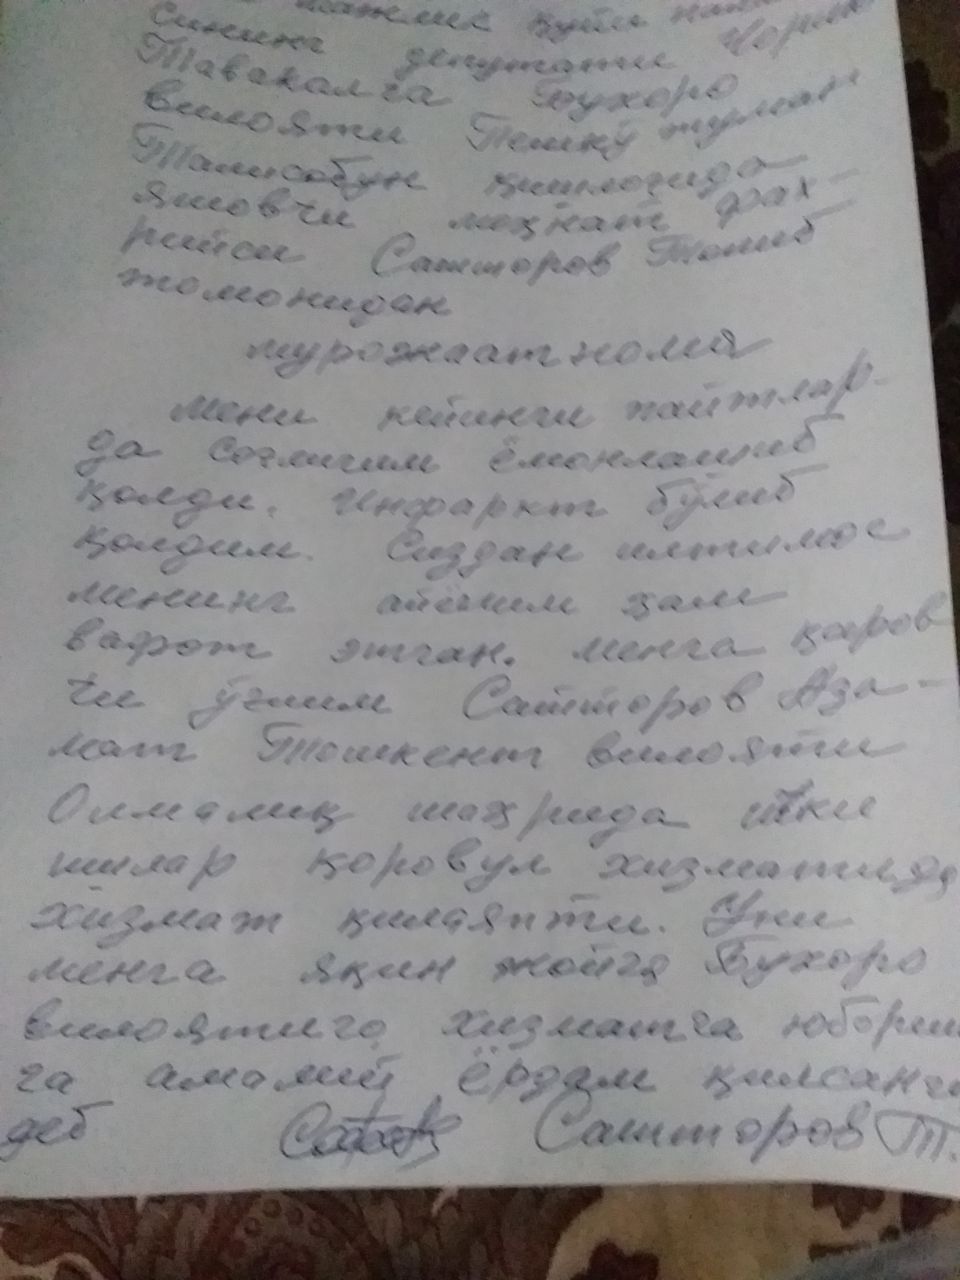 мажлис қуйи
сининг депутати
Тавакалга Бухоро
вилояти Пешкў туман
Талисобун қишлоғида
яшовчи меҳнат фах-
рийси Сатторов Толиб
томонидан
мурожаатнома
Мени кейинги пайтлар-
да соғлигим ёмонлашиб
қолди. Инфаркт бўлиб
қолдим. Сиздан илтимос
менинг аёлим ҳам
вафот этган. менга қаров
чи ўғлим Сатторов Аза-
мат Тошкент вилояти
Олмалиқ шаҳрида ички
ишлар қоровул хизматида
хизмат қилаяпти. Уни
менга яқин жойга Бухоро
вилоятига хизматга юбориш
га амалий ёрдам қилсанги
деб Сатторов Т.